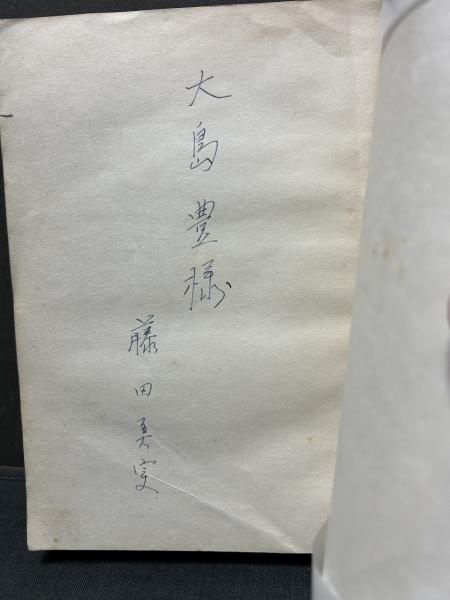 大島豊様
藤田真実